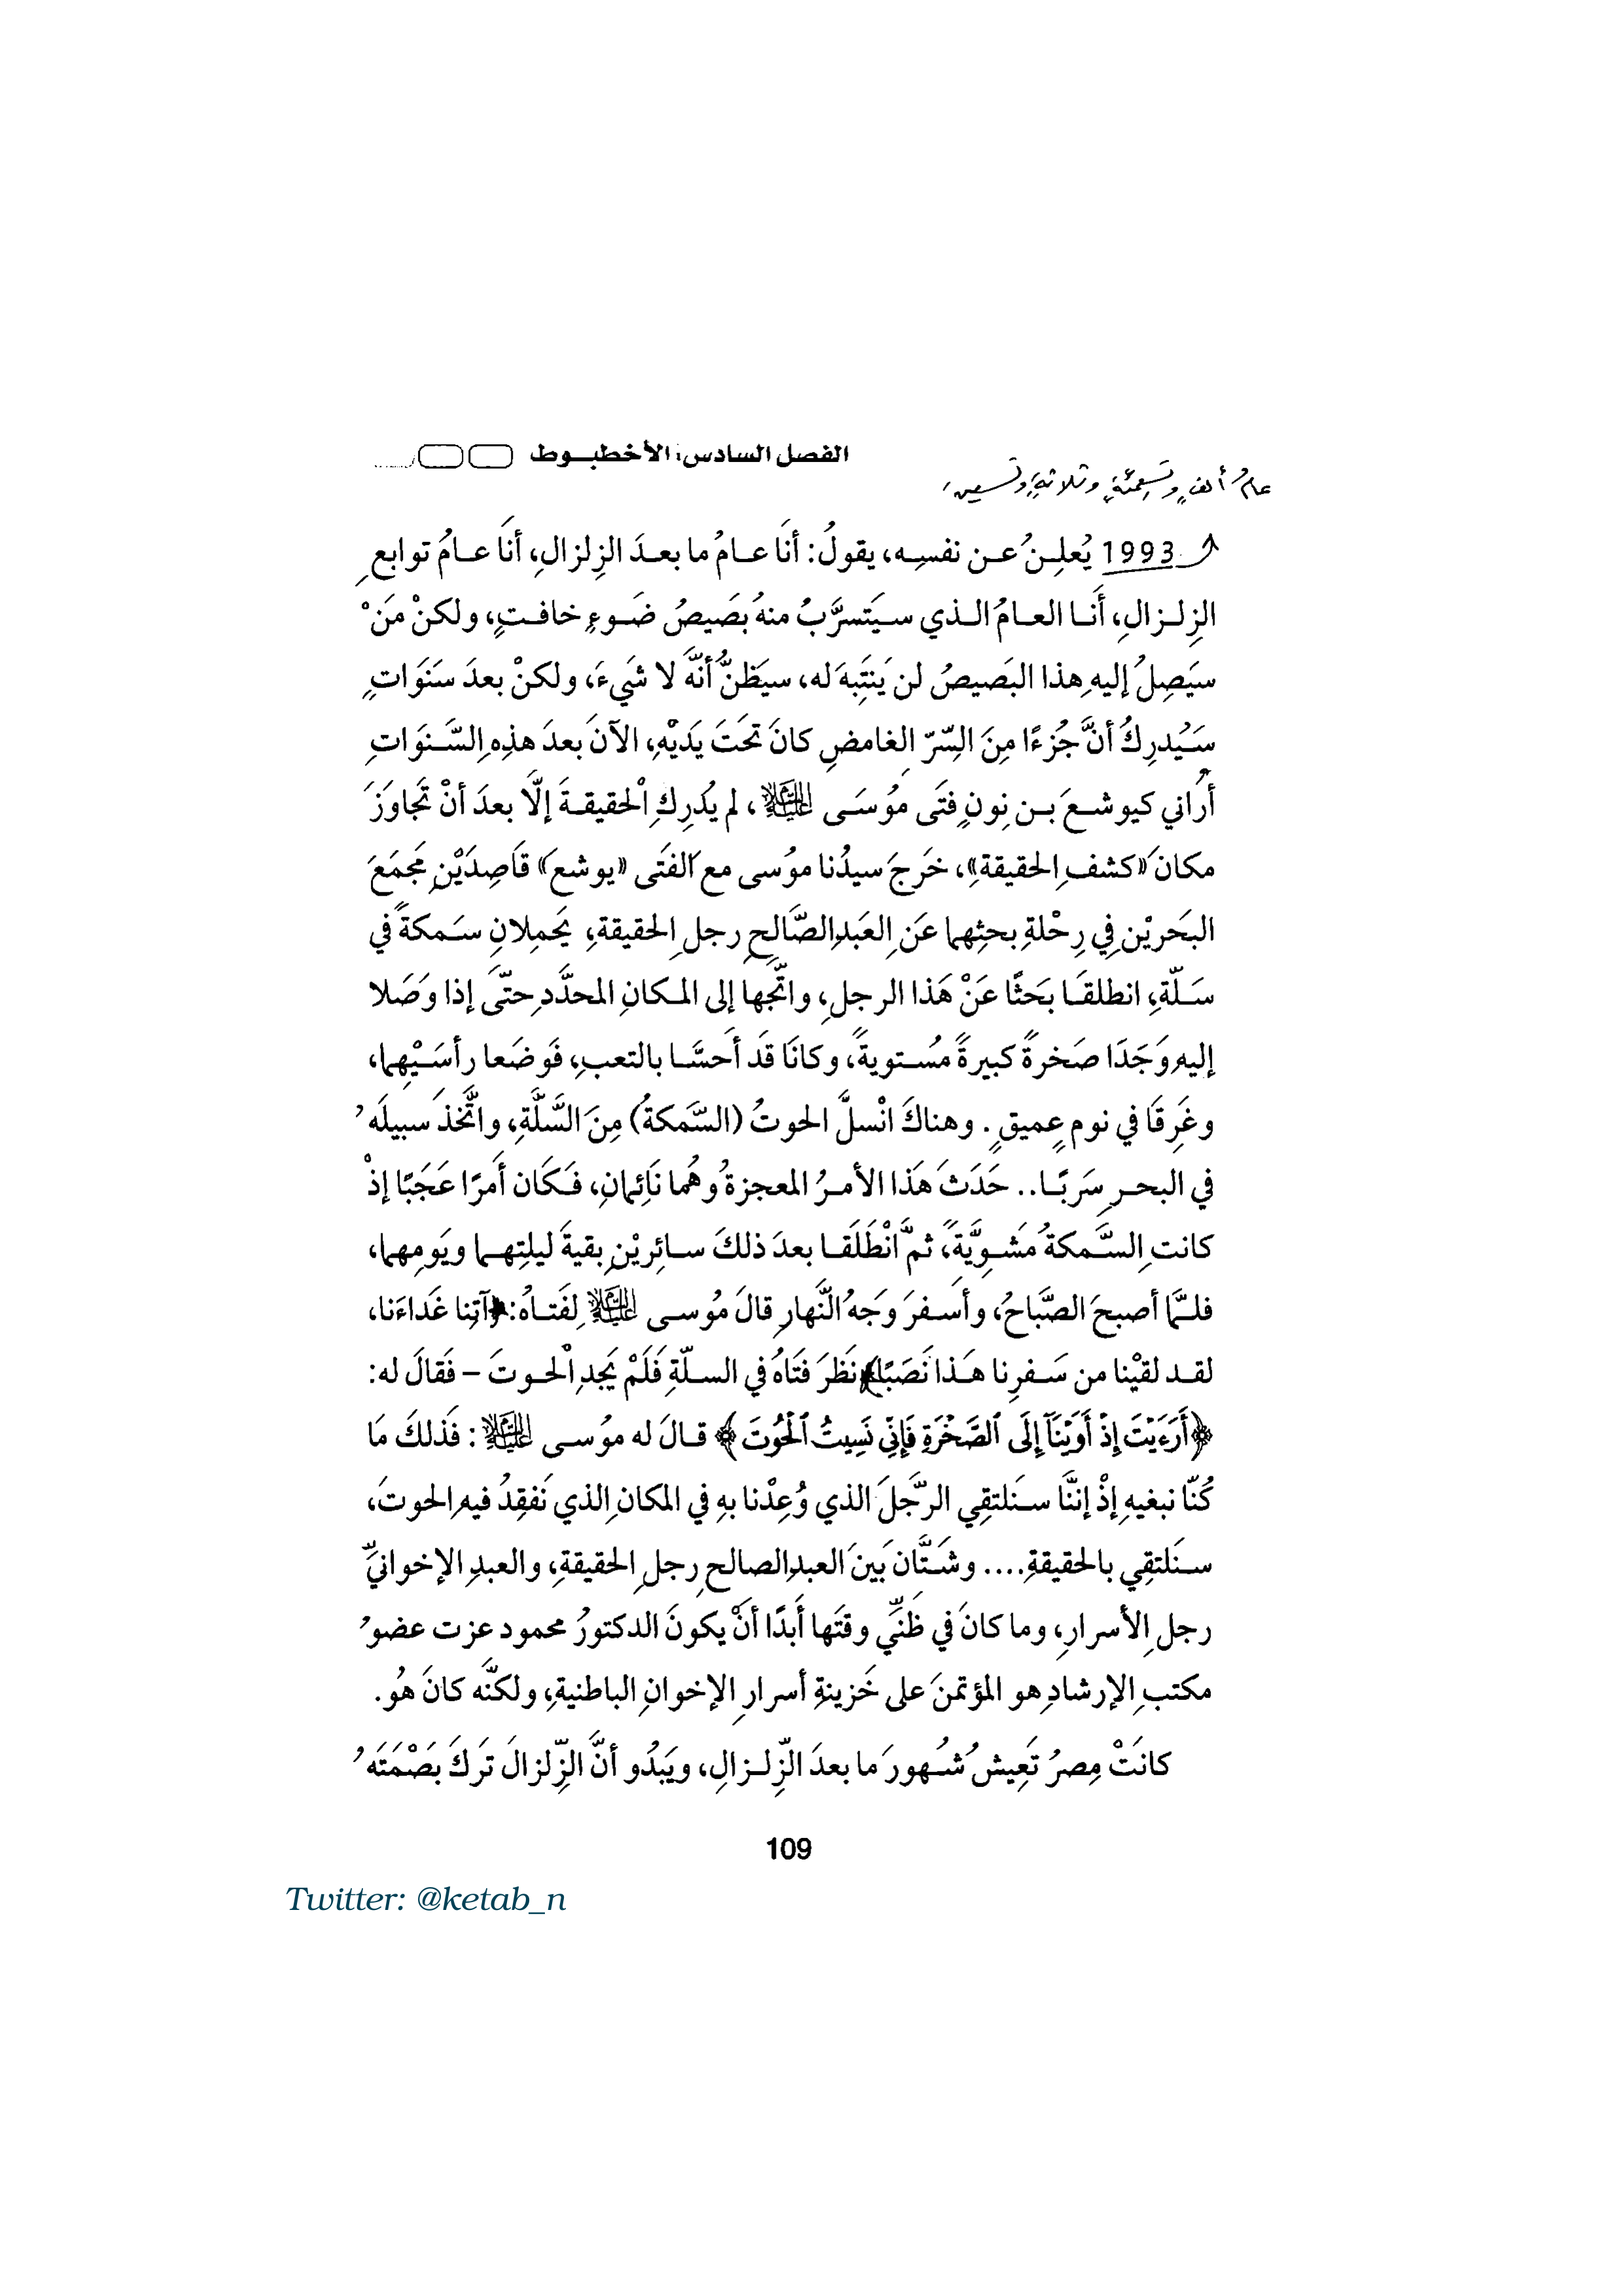 الفصل السادس: الأخطبوط
عامُ ألفٍ وتسعمئةٍ وثلاثةٍ وتسعين
1993 يُعلِنُ عن نفسِه، يقولُ: أنَا عامُ ما بعدَ الزِلزالِ، أنَا عامُ توابعِ
الزِلزالِ، أَنا العامُ الذي سيَتسرَّبُ منهُ بَصَيصُ ضَوءٍ خافتٍ، ولكنْ مَنْ
سيَصِلُ إليهِ هذا البَصيصُ لن يَنتَبِهَ له، سيَظنُّ أنَّهُ لا شَيءَ، ولكنْ بعدَ سَنَوَاتٍ
سَيُدرِكُ أنَّ جُزءًا مِنَ السِّرّ الغامضِ كانَ تحَتَ يَدَيْهِ، الآنَ بعدَ هذِهِ السَّنوَاتِ
أُرَاني كيوشعَ بن نونٍ فتَى مُوسَى عليه السلام، لم يُدرِكِ الْحقيقةَ إلَّا بعدَ أنْ تَجاوَزَ
مكانَ «كشفِ الحقيقة»، خَرجَ سيدُنا موُسى معَ الفَتَى «يوشعَ» قَاصِدَيْنِ مَجمَعَ
البَحريْنِ فِي رِحْلةِ بحثِهما عَنِ العَبدِ الصَّالحِ رجلِ الحقيقةِ، يَحمِلانِ سَمكةً في
سَلّةِ، انطلقَا بحَثًا عَنْ هَذا الرجلِ، واتَّجها إلى المكانِ المحدَّدِ حتَّى إذا وَصَلا
إليهِ وَجَدَا صَخرةً كبيرةً مُستويةً، وكانَا قَد أَحسَّا بالتعبِ، فَوضَعا رأسَيْهِما،
وغَرِقَا في نومٍ عميقٍ. وهناكَ انْسلَّ الحوتُ (السَّمكةُ) مِنَ السَّلَّةِ، واتَّخذَ سبيلَهُ
في البحرِ سَربًا.. حَدَثَ هَذا الأمرُ المعجزةُ وهُما نَائِمانِ، فكَان أَمرًا عَجَبًا إذْ
كانتِ السَّمكةُ مَشويَّةً، ثمَّ انْطَلَقا بعدَ ذلكَ سائِريْنِ بقيةَ ليلتِهما ويَومِهما،
فلمَّا أصبحَ الصَّباحُ، وأَسفرَ وَجهُ النَّهارِ قالَ مُوسى عليه السلام لِفَتاهُ: ﴿آتِنا غَداءَنا،
لقد لقيْنا من سَفرِنا هَذا نَصَبًا﴾ نَظرَ فتَاهُ في السلّةِ فَلَمْ يَجدِ الْحوتَ – فَقالَ له:
﴿أَرَءَيۡتَ إِذۡ أَوَيۡنَآ إِلَى ٱلصَّخۡرَةِ فَإِنِّي نَسِيتُ ٱلۡحُوتَ﴾ قالَ له موُسى عليه السلام: فَذلكَ مَا
كُنّا نبغيهِ إذْ إننَّا سنَلتقِي الرَّجلَ الذي وُعِدْنا بهِ في المكانِ الذي نَفقِدُ فيهِ الحوتَ،
سنَلتقِي بالحقيقةِ.... وشَتَّانَ بَينَ العبدِ الصالحِ رجلِ الحقيقةِ، والعبدِ الإخوانيِّ
رجلِ الأسرارِ، وما كانَ في ظَنِّي وقتَها أَبدًا أنْ يكونَ الدكتورُ محمود عزت عضوُ
مكتبِ الإرشادِ هو المؤتمنَ على خَزينةِ أسرارِ الإخوانِ الباطنيةِ، ولكنَّه كانَ هُو.
كانَتْ مِصرُ تَعِيشُ شُهورَ ما بعدَ الزِّلزالِ، ويَبدُو أنَّ الزِّلزالَ تَركَ بَصْمَتَهُ
109
Twitter: @ketab_n